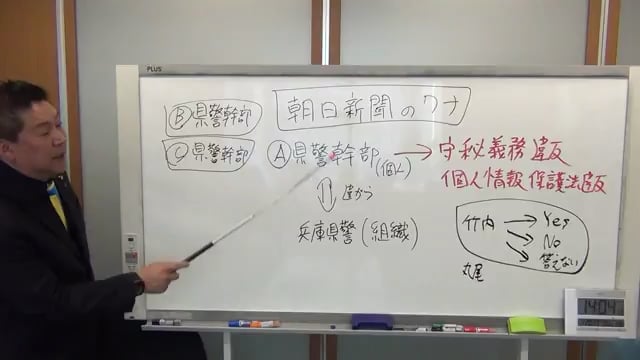 PLUS
朝日新聞のワナ
Ⓑ県警幹部
Ⓒ県警幹部
Ⓐ県警幹部(個人)→守秘義務違反
個人情報保護法違反
⇕違かう
兵庫県警(組織)
竹内→Yes
→No
→答えない
丸尾
14:04